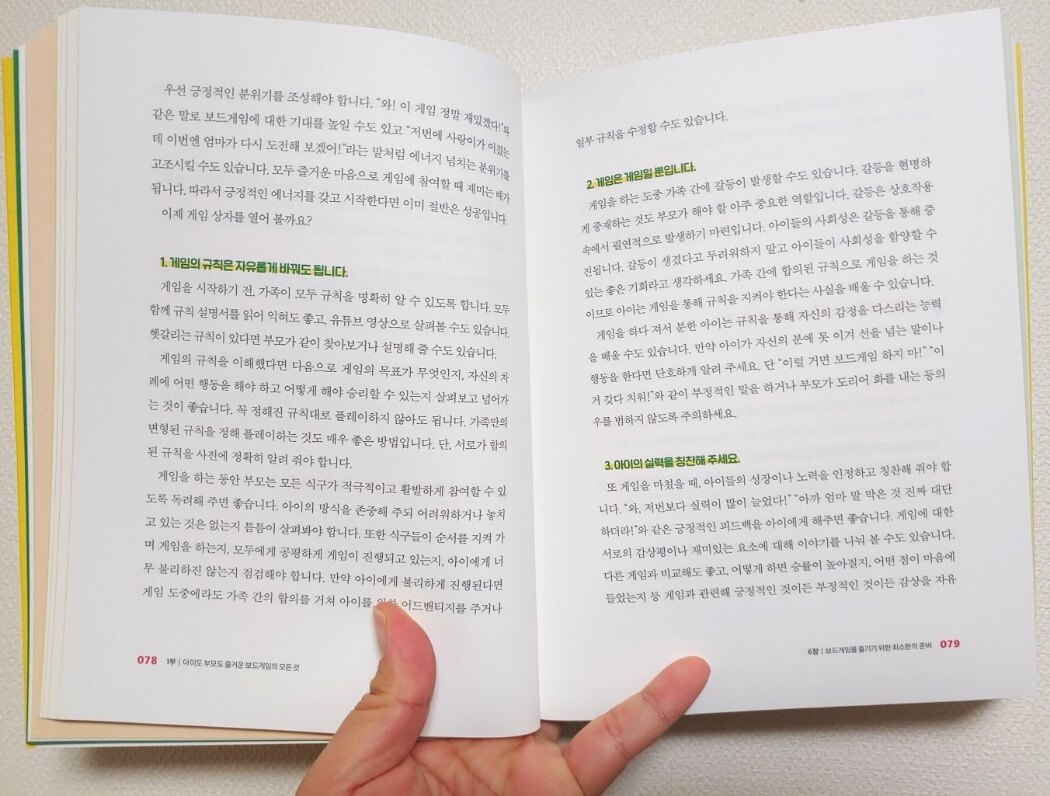 우선 긍정적인 분위기를 조성해야 합니다. "와! 이 게임 정말 재밌겠다!"와
같은 말로 보드게임에 대한 기대를 높일 수도 있고 "저번에 사랑이가 이겼는
데 이번엔 엄마가 다시 도전해 보겠어!"라는 말처럼 에너지 넘치는 분위기를
고조시킬 수도 있습니다. 모두 즐거운 마음으로 게임에 참여할 때 재미는 배가
됩니다. 따라서 긍정적인 에너지를 갖고 시작한다면 이미 절반은 성공입니다.
이제 게임 상자를 열어 볼까요?
1. 게임의 규칙은 자유롭게 바꿔도 됩니다.
게임을 시작하기 전, 가족이 모두 규칙을 명확히 알 수 있도록 합니다. 모두
함께 규칙 설명서를 읽어 익혀도 좋고, 유튜브 영상으로 살펴볼 수도 있습니다.
헷갈리는 규칙이 있다면 부모가 같이 찾아보거나 설명해 줄 수도 있습니다.
게임의 규칙을 이해했다면 다음으로 게임의 목표가 무엇인지, 자신의 차
례에 어떤 행동을 해야 하고 어떻게 해야 승리할 수 있는지 살펴보고 넘어가
는 것이 좋습니다. 꼭 정해진 규칙대로 플레이하지 않아도 됩니다. 가족만의
변형된 규칙을 정해 플레이하는 것도 매우 좋은 방법입니다. 단, 서로가 합의
된 규칙을 사전에 정확히 알려 줘야 합니다.
게임을 하는 동안 부모는 모든 식구가 적극적이고 활발하게 참여할 수 있
도록 독려해 주면 좋습니다. 아이의 방식을 존중해 주되 어려워하거나 놓치
고 있는 것은 없는지 틈틈이 살펴봐야 합니다. 또한 식구들이 순서를 지켜 가
며 게임을 하는지, 모두에게 공평하게 게임이 진행되고 있는지, 아이에게 너
무 불리하진 않는지 점검해야 합니다. 만약 아이에게 불리하게 진행된다면
게임 도중에라도 가족 간의 합의를 거쳐 아이를 어드밴티지를 주거나
078 1부 | 아이도 부모도 즐거운 보드게임의 모든 것
일부 규칙을 수정할 수도 있습니다.
2. 게임은 게임일 뿐입니다.
게임을 하는 도중 가족 간에 갈등이 발생할 수도 있습니다. 갈등을 현명하
게 중재하는 것도 부모가 해야 할 아주 중요한 역할입니다. 갈등은 상호작용
속에서 필연적으로 발생하기 마련입니다. 아이들의 사회성은 갈등을 통해 증
진됩니다. 갈등이 생겼다고 두려워하지 말고 아이들이 사회성을 함양할 수
있는 좋은 기회라고 생각하세요. 가족 간에 합의된 규칙으로 게임을 하는 것
이므로 아이는 게임을 통해 규칙을 지켜야 한다는 사실을 배울 수 있습니다.
게임을 하다 져서 분한 아이는 규칙을 통해 자신의 감정을 다스리는 능력
을 배울 수도 있습니다. 만약 아이가 자신의 분에 못 이겨 선을 넘는 말이나
행동을 한다면 단호하게 알려 주세요. 단 "이럴 거면 보드게임 하지 마!" "이
거 갖다 치워!"와 같이 부정적인 말을 하거나 부모가 도리어 화를 내는 등의
우를 범하지 않도록 주의하세요.
3. 아이의 실력을 칭찬해 주세요.
또 게임을 마쳤을 때, 아이들의 성장이나 노력을 인정하고 칭찬해 줘야 합
니다. "와, 저번보다 실력이 많이 늘었다!" "아까 엄마 말 막은 것 진짜 대단
하더라!"와 같은 긍정적인 피드백을 아이에게 해주면 좋습니다. 게임에 대한
서로의 감상평이나 재미있는 요소에 대해 이야기를 나눠 볼 수도 있습니다.
다른 게임과 비교해도 좋고, 어떻게 하면 승률이 높아질지, 어떤 점이 마음에
들었는지 등 게임과 관련해 긍정적인 것이든 부정적인 것이든 감상을 자유
6장 | 보드게임을 즐기기 위한 최소한의 준비 079